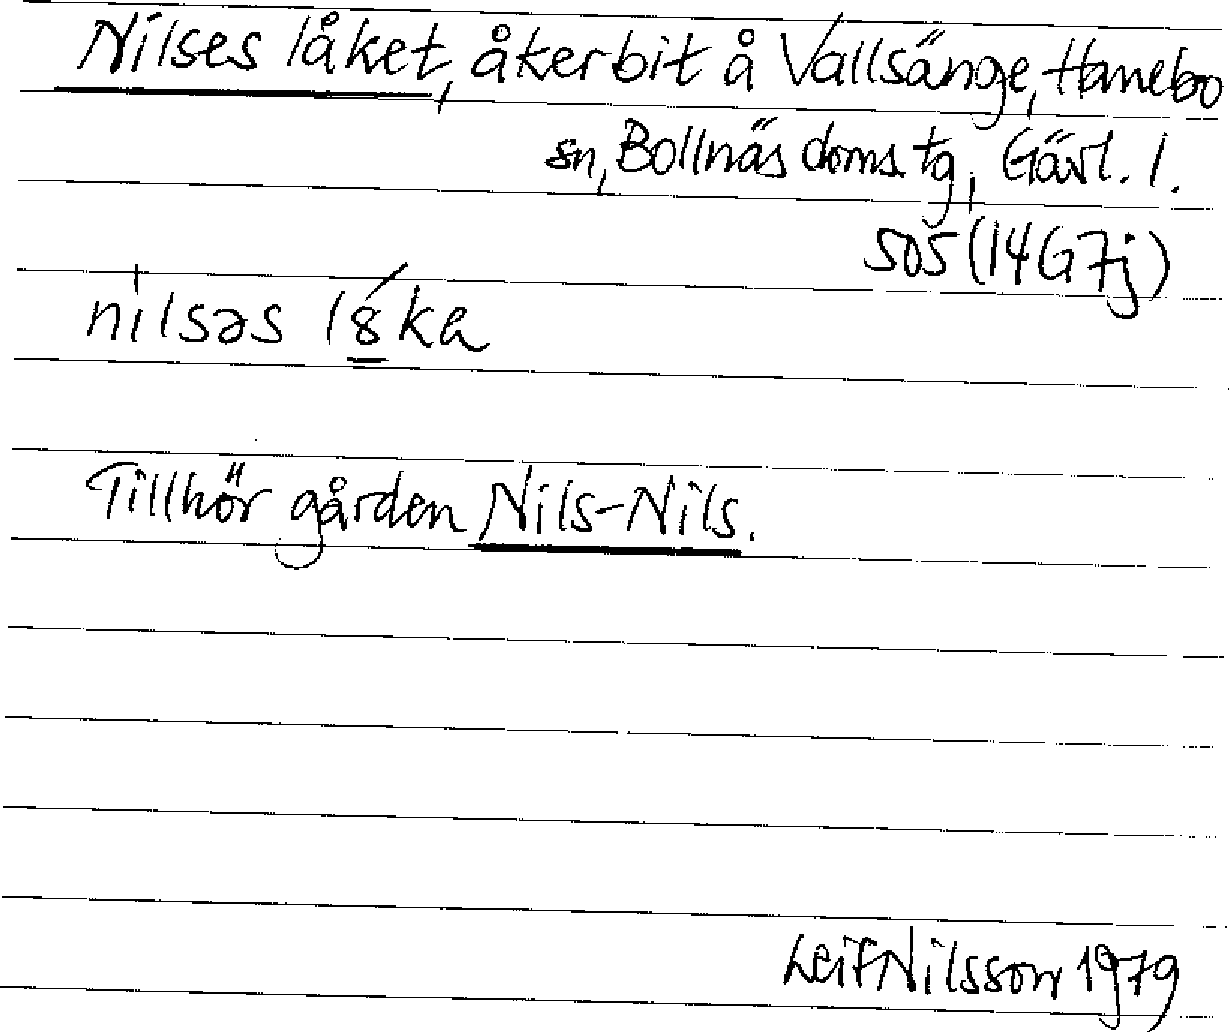 Nilses låket, åkerbit å Vallsänge, Hanebo
sn, Bollnäs doms. tg, Gävl. l.
SO5 (14G7j)
nilsəs l8́ka
Tillhör gården Nils-Nils.
Leif Nilsson 1979